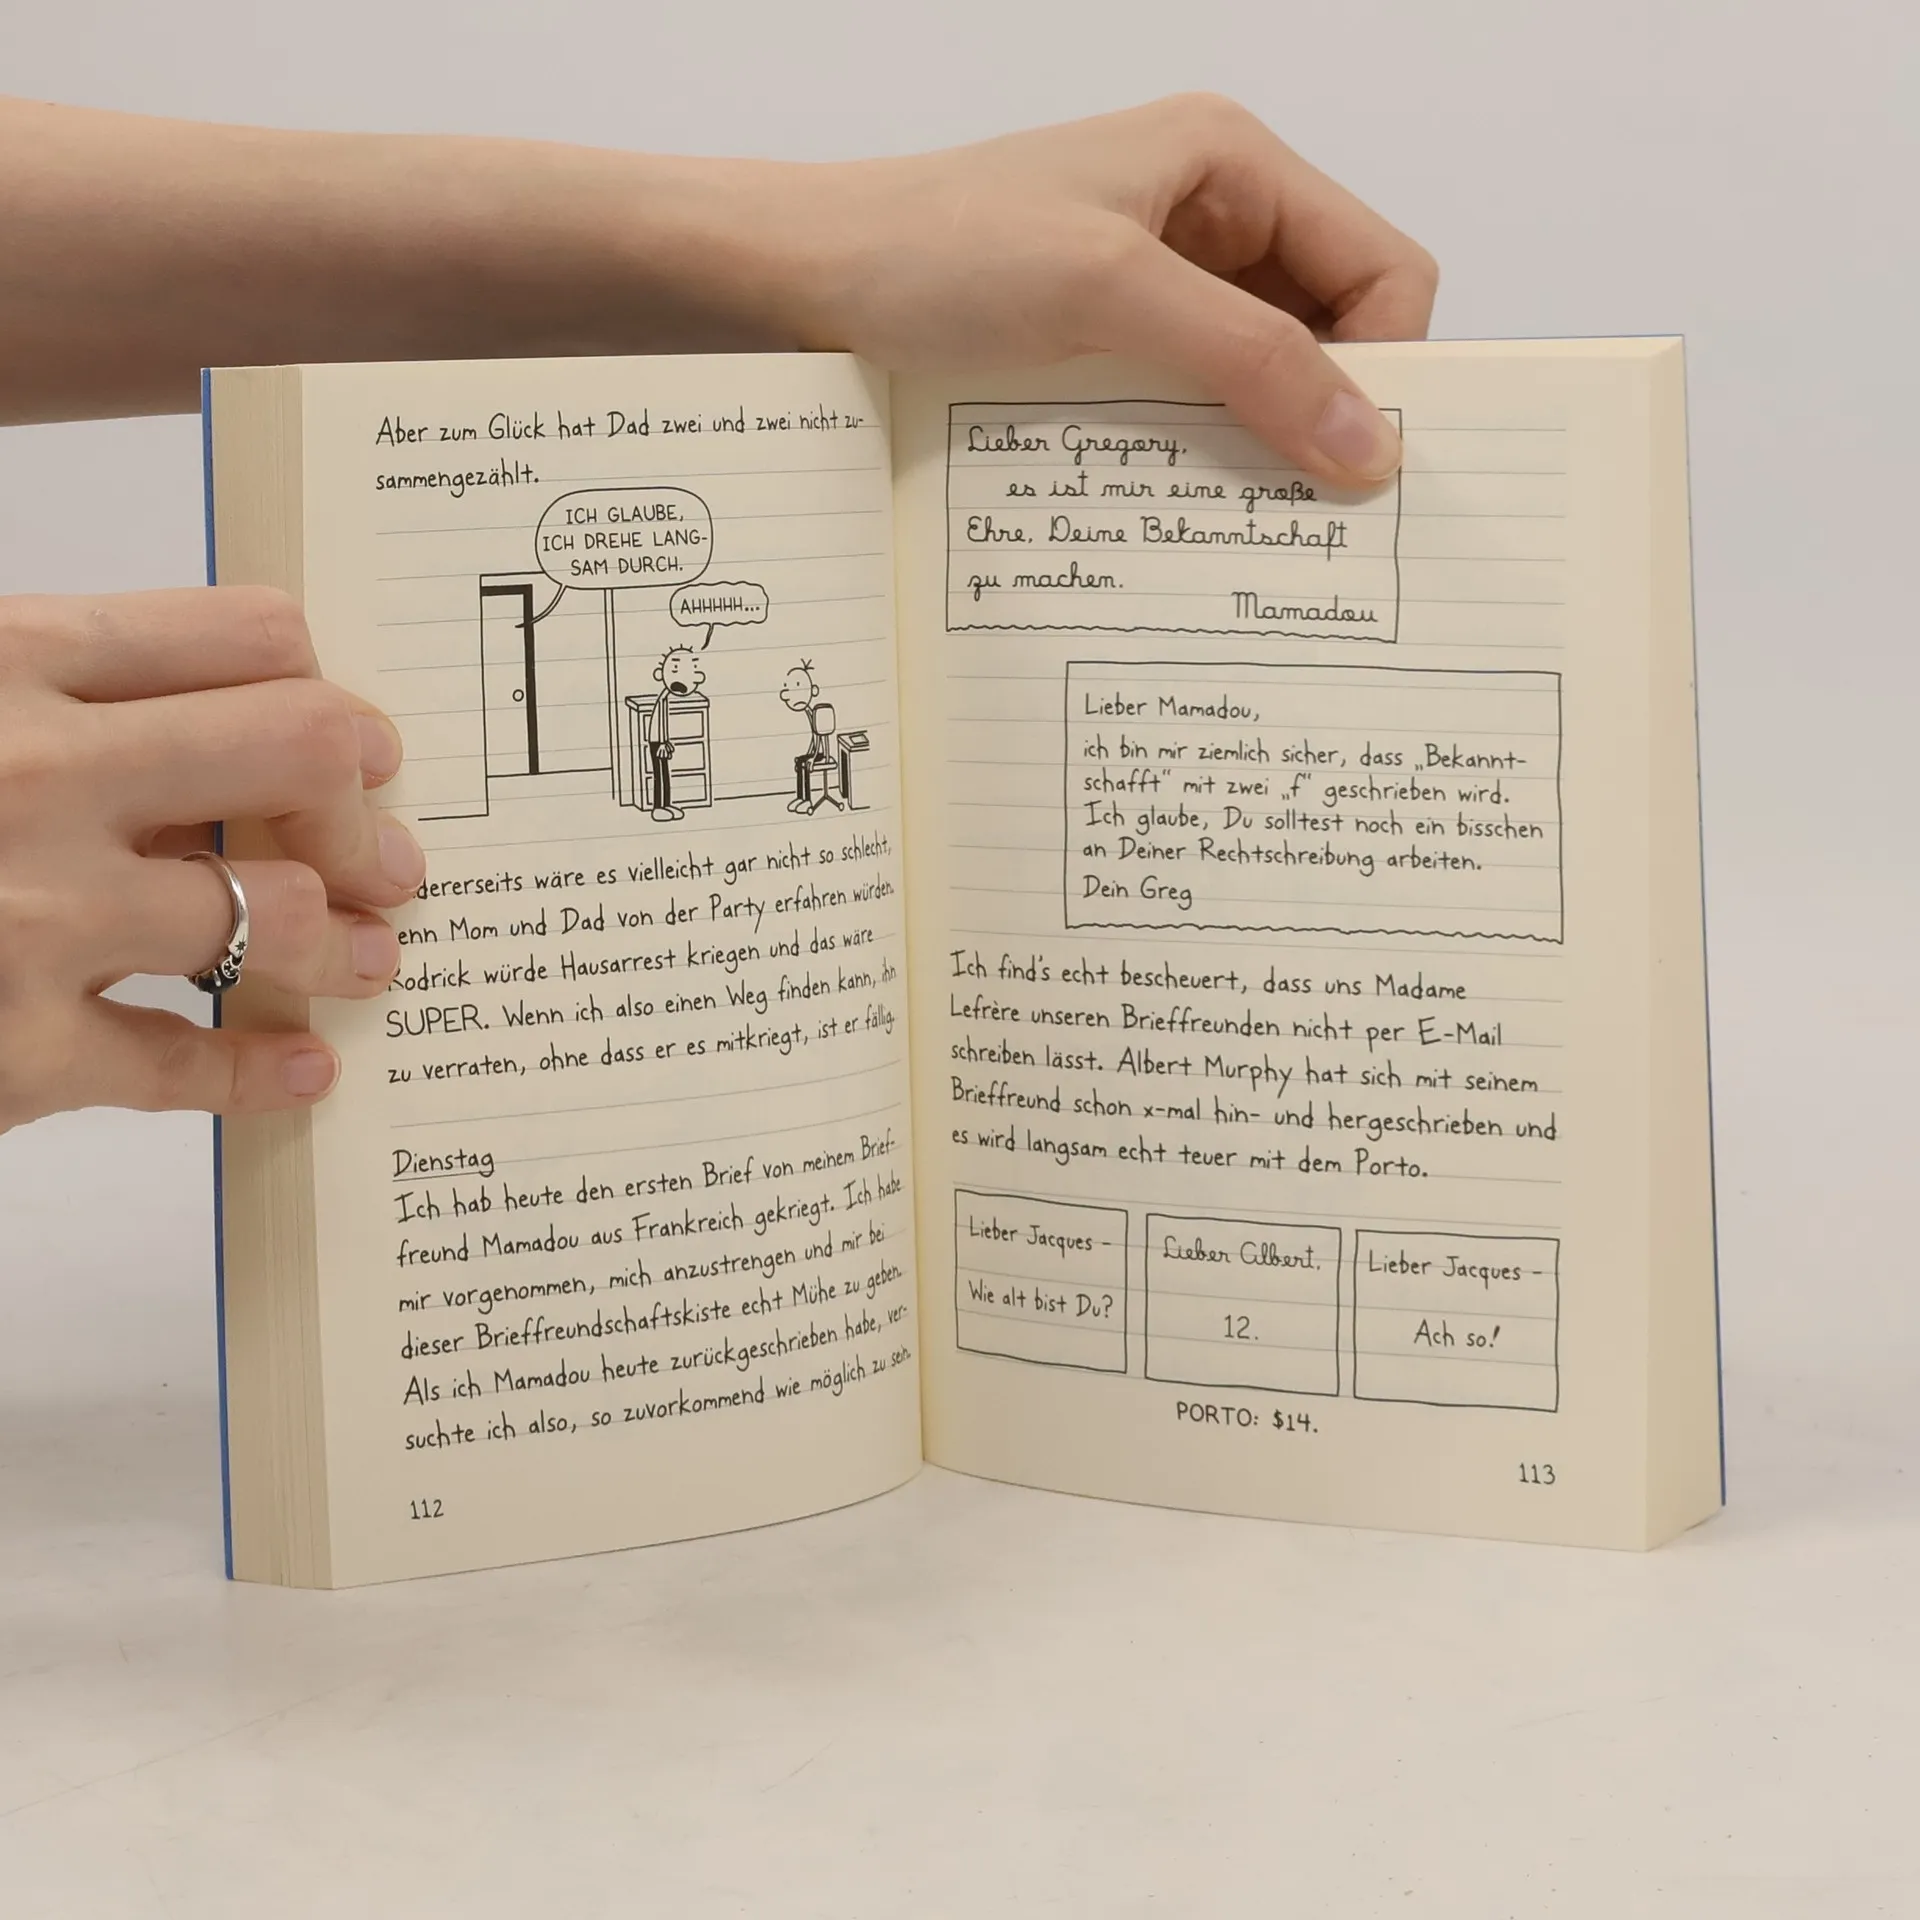 Aber zum Glück hat Dad zwei und zwei nicht zu-
sammengezählt.
ICH GLAUBE,
ICH DREHE LANG-
SAM DURCH.
AHHHHH...
dererseits wäre es vielleicht gar nicht so schlecht,
enn Mom und Dad von der Party erfahren würden.
Rodrick würde Hausarrest kriegen und das wäre
SUPER. Wenn ich also einen Weg finden kann, ihn
zu verraten, ohne dass er es mitkriegt, ist er fällig.
Dienstag
Ich hab heute den ersten Brief von meinem Brief-
freund Mamadou aus Frankreich gekriegt. Ich habe
mir vorgenommen, mich anzustrengen und mir bei
dieser Brieffreundschaftskiste echt Mühe zu geben.
Als ich Mamadou heute zurückgeschrieben habe, ver-
suchte ich also, so zuvorkommend wie möglich zu sein.
112
Lieber Gregory,
es ist mir eine große
Ehre, Deine Bekanntschaft
zu machen.
Mamadou
Lieber Mamadou,
ich bin mir ziemlich sicher, dass „Bekannt-
schafft“ mit zwei „f“ geschrieben wird.
Ich glaube, Du solltest noch ein bisschen
an Deiner Rechtschreibung arbeiten.
Dein Greg
Ich find's echt bescheuert, dass uns Madame
Lefrère unseren Brieffreunden nicht per E-Mail
schreiben lässt. Albert Murphy hat sich mit seinem
Brieffreund schon x-mal hin- und hergeschrieben und
es wird langsam echt teuer mit dem Porto.
Lieber Jacques -
Wie alt bist Du?
Lieber Albert,
12.
Lieber Jacques -
Ach so!
PORTO: $14.
113